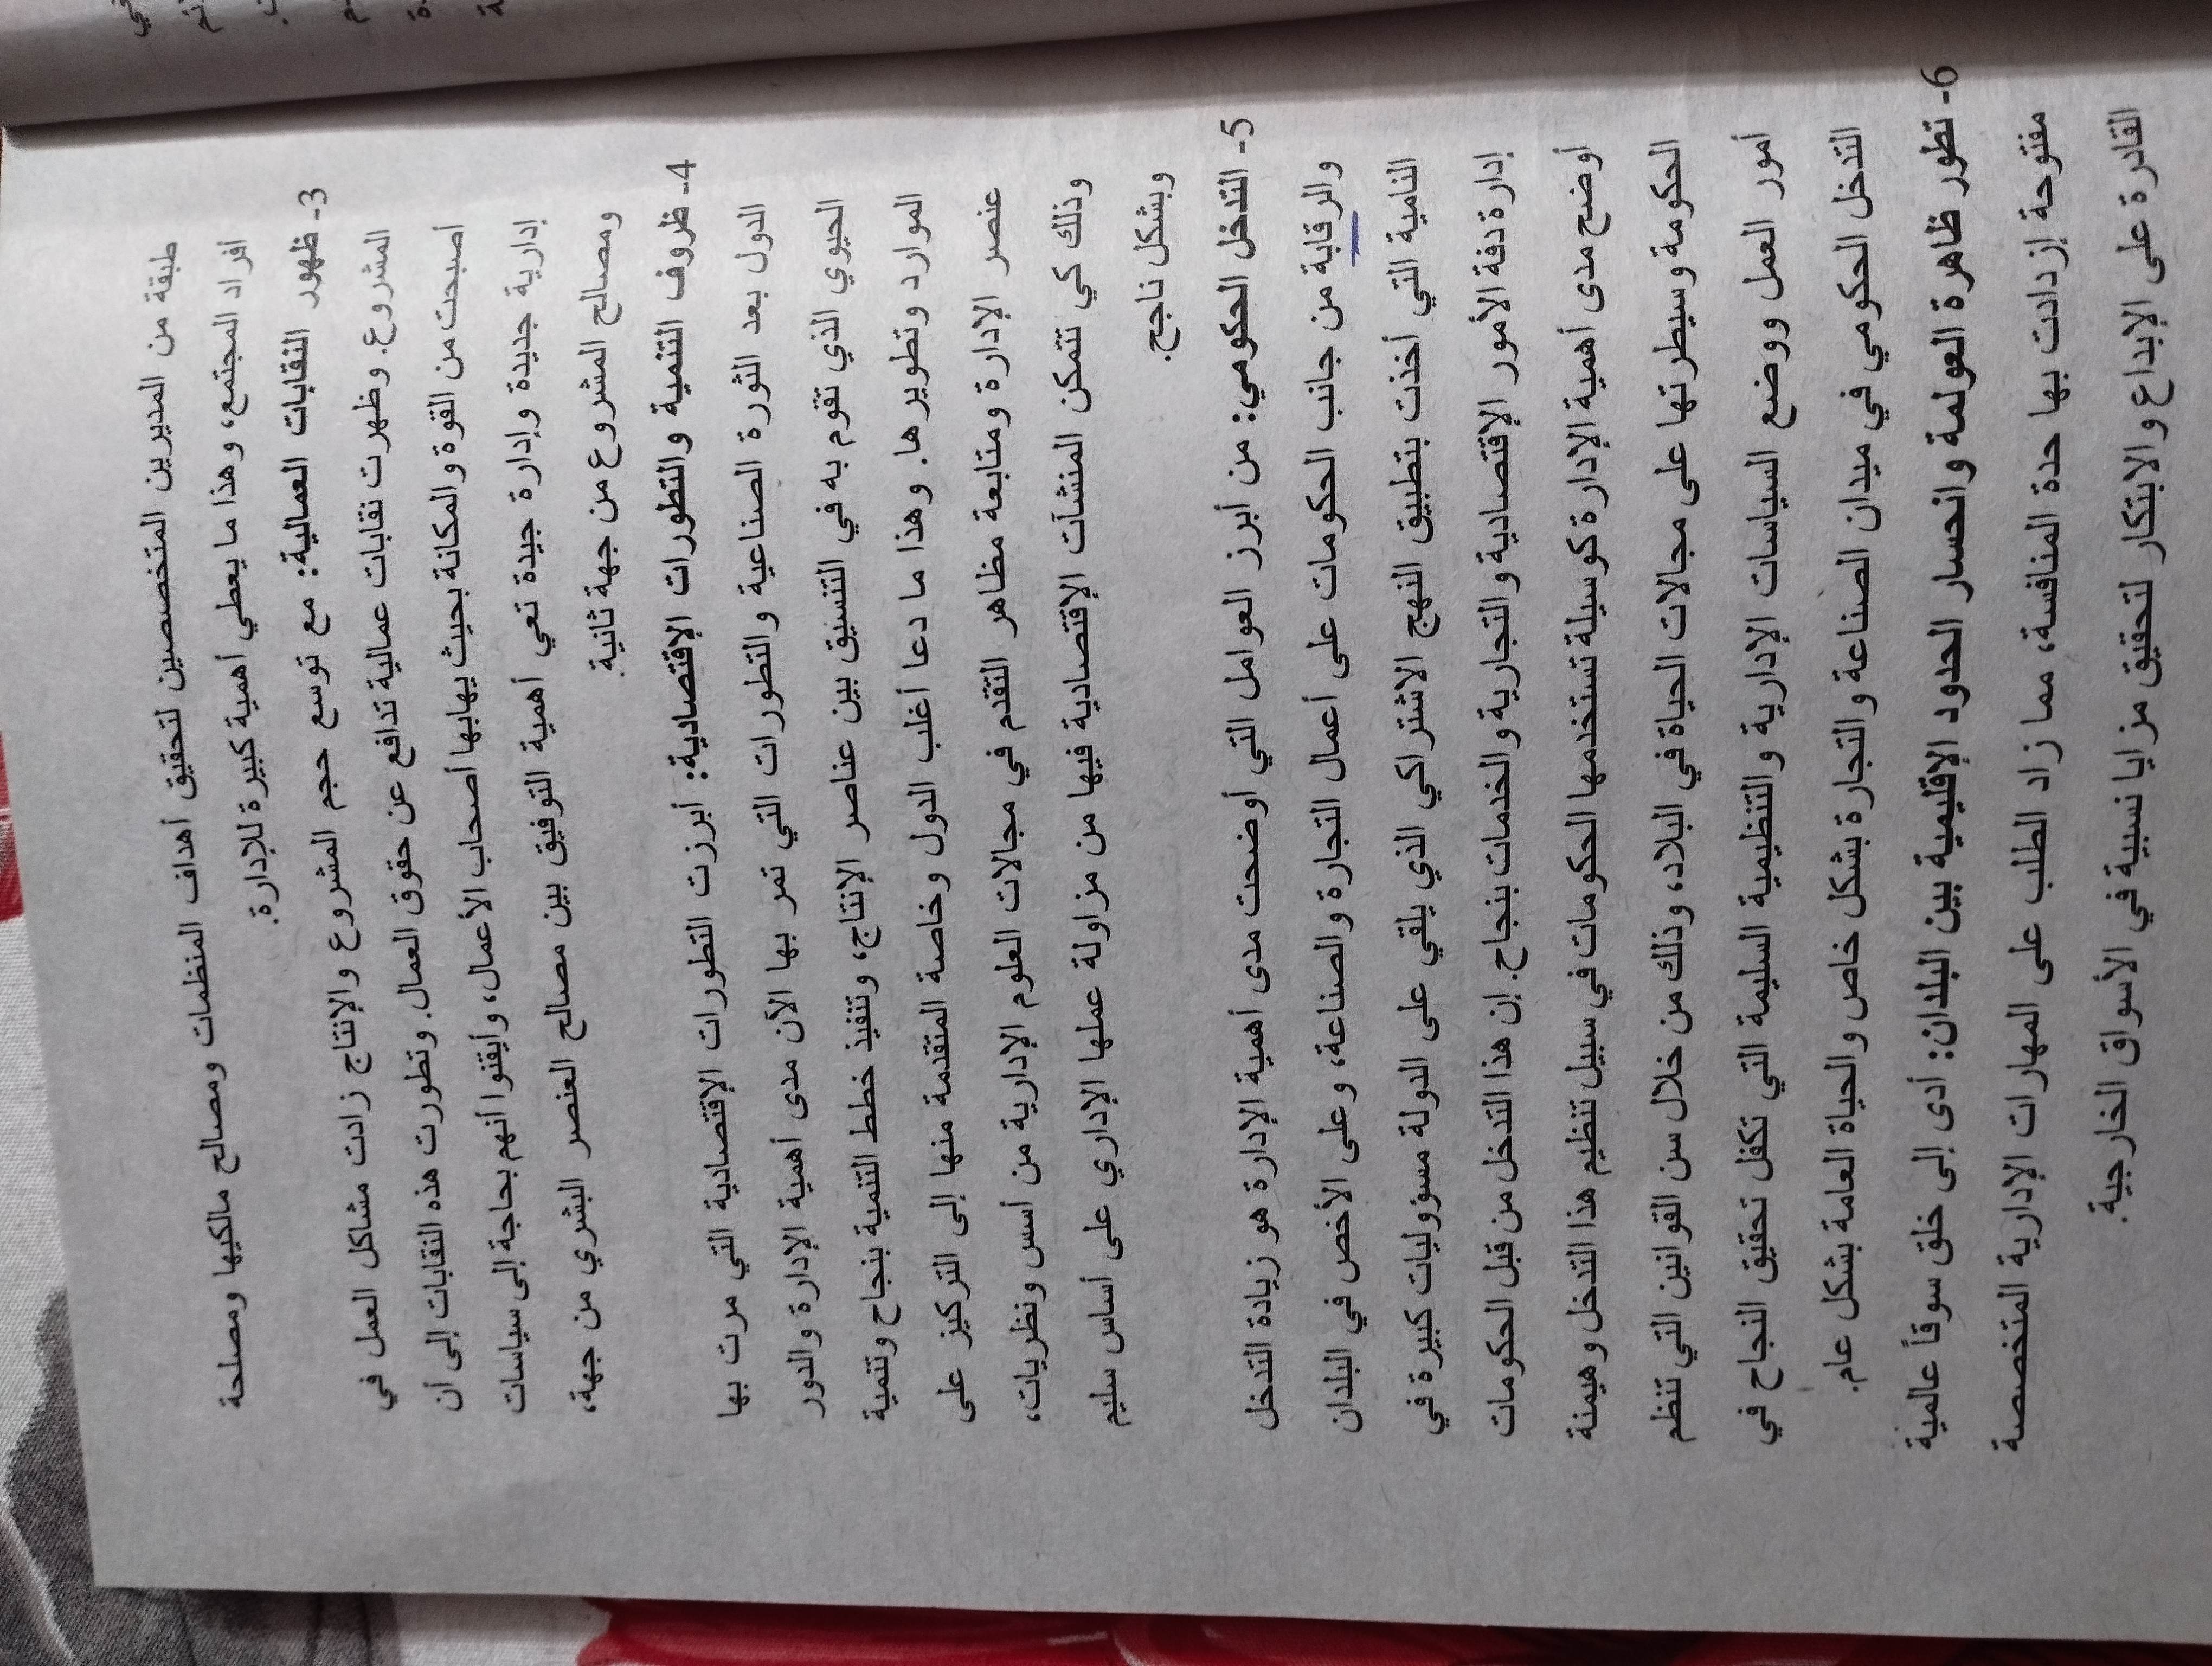 طبقة من المديرين المتخصصين لتحقيق أهداف المنظمات ومصالح مالكيها ومصلحة
أفراد المجتمع، وهذا ما يعطي أهمية كبيرة للإدارة.
3- ظهور النقابات العمالية: مع توسع حجم المشروع والإنتاج زادت مشاكل العمل في
المشروع. وظهرت نقابات عمالية تدافع عن حقوق العمال. وتطورت هذه النقابات إلى أن
أصبحت من القوة والمكانة بحيث يهابها أصحاب الأعمال، وأيقنوا أنهم بحاجة إلى سياسات
إدارية جديدة وإدارة جيدة تعي أهمية التوفيق بين مصالح العنصر البشري من جهة،
ومصالح المشروع من جهة ثانية.
4- ظروف التنمية والتطورات الإقتصادية: أبرزت التطورات الإقتصادية التي مرت بها
الدول بعد الثورة الصناعية والتطورات التي تمر بها الآن مدى أهمية الإدارة والدور
الحيوي الذي تقوم به في التنسيق بين عناصر الإنتاج، وتنفيذ خطط التنمية بنجاح وتنمية
الموارد وتطويرها. وهذا ما دعا أغلب الدول وخاصة المتقدمة منها إلى التركيز على
عنصر الإدارة ومتابعة مظاهر التقدم في مجالات العلوم الإدارية من أسس ونظريات،
وذلك كي تتمكن المنشآت الإقتصادية فيها من مزاولة عملها الإداري على أساس سليم
وبشكل ناجح.
5- التدخل الحكومي: من أبرز العوامل التي أوضحت مدى أهمية الإدارة هو زيادة التدخل
والرقابة من جانب الحكومات على أعمال التجارة والصناعة، وعلى الأخص في البلدان
النامية التي أخذت بتطبيق النهج الاشتراكي الذي يلقي على الدولة مسؤوليات كبيرة في
إدارة دفة الأمور الإقتصادية والتجارية والخدمات بنجاح. إن هذا التدخل من قبل الحكومات
أوضح مدى أهمية الإدارة كوسيلة تستخدمها الحكومات في سبيل تنظيم هذا التدخل وهيمنة
الحكومة وسيطرتها على مجالات الحياة في البلاد، وذلك من خلال سن القوانين التي تنظم
أمور العمل ووضع السياسات الإدارية والتنظيمية السليمة التي تكفل تحقيق النجاح في
التدخل الحكومي في ميدان الصناعة والتجارة بشكل خاص والحياة العامة بشكل عام.
6- تطور ظاهرة العولمة وانحسار الحدود الإقليمية بين البلدان: أدى إلى خلق سوقاً عالمية
مفتوحة إزدادت بها حدة المنافسة، مما زاد الطلب على المهارات الإدارية المتخصصة
القادرة على الإبداع والابتكار لتحقيق مزايا نسبية في الأسواق الخارجية.